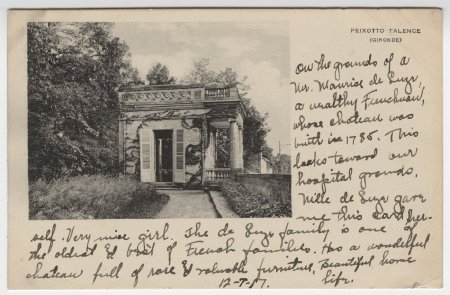 PEIXOTTO TALENCE
(GIRONDE)
On the grounds of a
Mr. Maurice de Luze,
a wealthy Frenchman,
whose chateau was
built in 1785. This
looks toward our
hospital grounds.
Mlle de Luze gave
me this card her-
self. Very nice girl. The de Luze family is one of
the oldest & best of French families. Has a wonderful
chateau full of rare & valuable furniture, Beautiful home
life.
12-7-17.